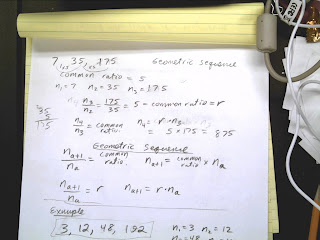 7, 35, 175 Geometric Sequence
×5 ×5
common ratio = 5
n₁ = 7 n₂ = 35 n₃ = 175
n₃/n₂ = 175/35 = 5 - common ratio = r
35
5
175
n₄/n₃ = common ratio. n₄ = r · n₃
= 5 × 175 = 875
Geometric Sequence
nₐ₊₁/nₐ = common ratio nₐ₊₁ = common ratio × nₐ
nₐ₊₁/nₐ = r nₐ₊₁ = r · nₐ
Example
3, 12, 48, 192 n₁ = 3 n₂ = 12